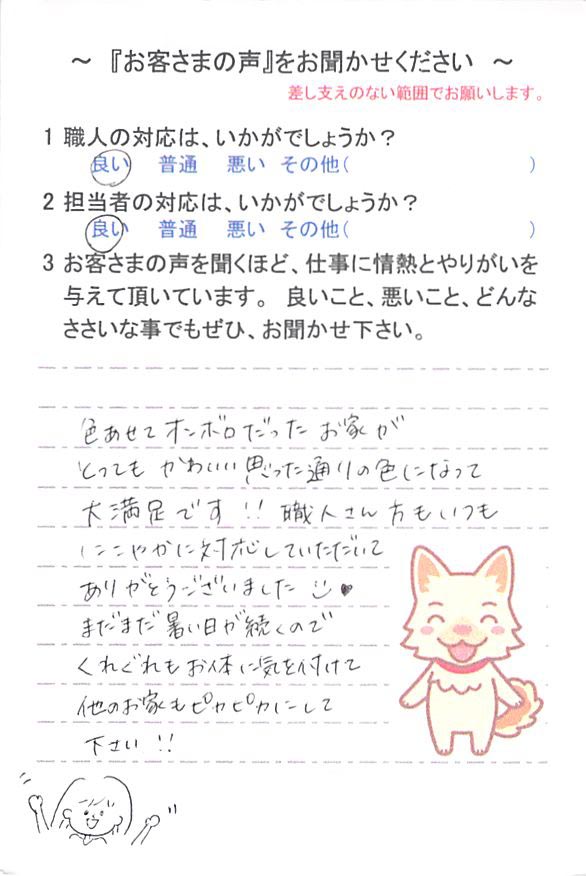 ～ 『お客さまの声』をお聞かせください ～
差し支えのない範囲でお願いします。
1 職人の対応は、いかがでしょうか？
良い 普通 悪い その他( )
2 担当者の対応は、いかがでしょうか？
良い 普通 悪い その他( )
3 お客さまの声を聞くほど、仕事に情熱とやりがいを
与えて頂いています。 良いこと、悪いこと、どんな
ささいな事でもぜひ、お聞かせ下さい。
色あせて オンボロだった お家が
とっても かわいい 思った通りの色になって
大満足です!! 職人さん方もいつも
にこやかに対応していただいて
ありがとうございました
まだまだ暑い日が続くので
くれぐれもお体に気を付けて
他のお家もピカピカにして
下さい!!